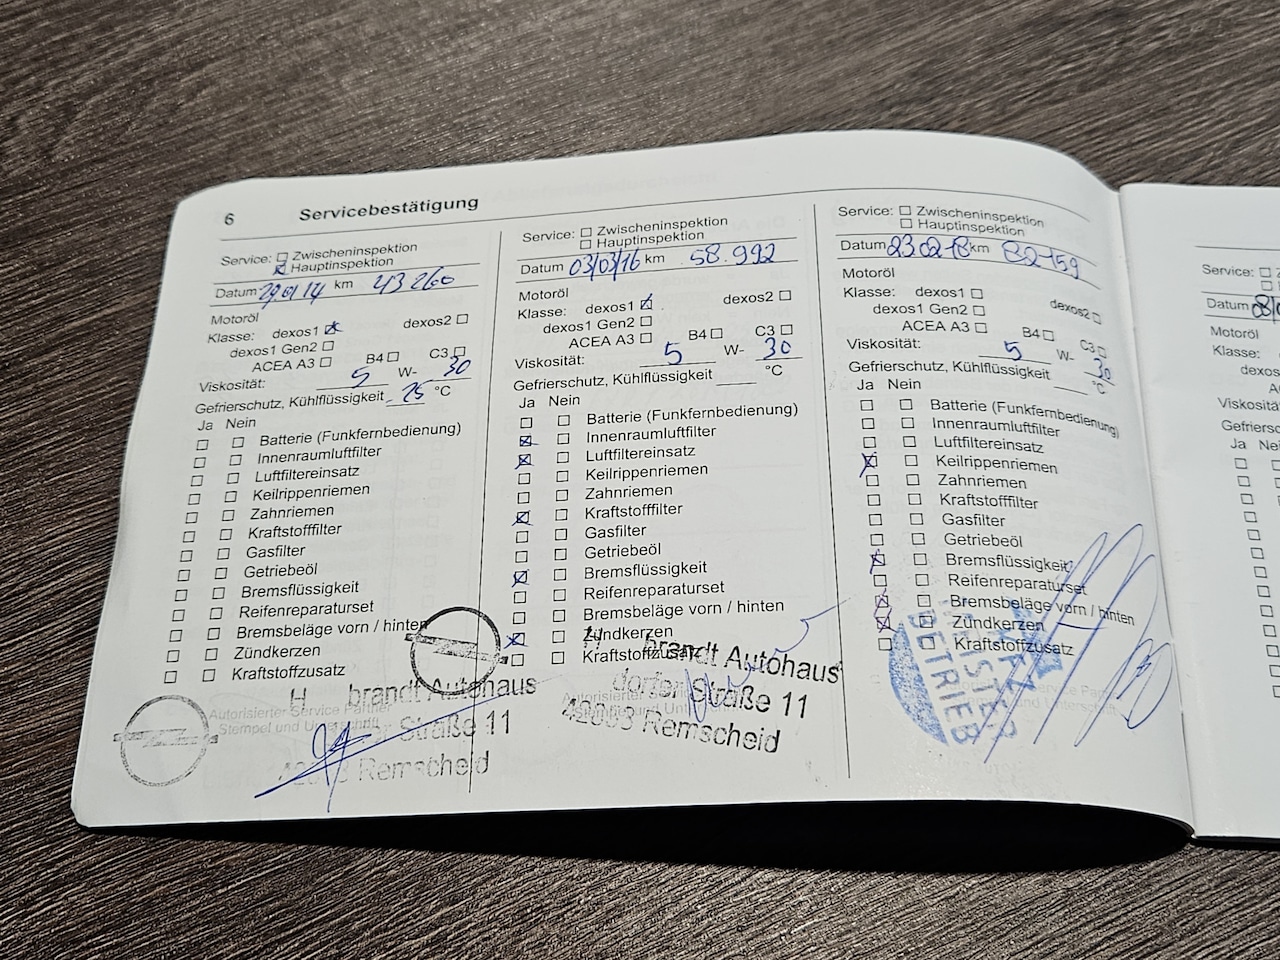 6 Servicebestätigung
Service: Zwischeninspektion
Hauptinspektion
Datum 29/01/14 km 43260
Motoröl
Klasse: dexos1 dexos2
dexos1 Gen2
ACEA A3 B4 C3
Viskosität: 5 W- 30
Gefrierschutz, Kühlflüssigkeit - 25 °C
Ja Nein
Batterie (Funkfernbedienung)
Innenraumluftfilter
Luftfiltereinsatz
Keilrippenriemen
Zahnriemen
Kraftstofffilter
Gasfilter
Getriebeöl
Bremsflüssigkeit
Reifenreparaturset
Bremsbeläge vorn / hinten
Zündkerzen
Kraftstoffzusatz
Autorisierter Service Partner
Stempel und Unterschrift
H brandt Autohaus
Straße 11
Remscheid
Service: Zwischeninspektion
Hauptinspektion
Datum 03/03/16 km 58.992
Motoröl
Klasse: dexos1 dexos2
dexos1 Gen2
ACEA A3 B4 C3
Viskosität: 5 W- 30
Gefrierschutz, Kühlflüssigkeit °C
Ja Nein
Batterie (Funkfernbedienung)
Innenraumluftfilter
Luftfiltereinsatz
Keilrippenriemen
Zahnriemen
Kraftstofffilter
Gasfilter
Getriebeöl
Bremsflüssigkeit
Reifenreparaturset
Bremsbeläge vorn / hinten
Zündkerzen
Kraftstoffzusatz
H brandt Autohaus
dorfer Straße 11
Remscheid
Service: Zwischeninspektion
Hauptinspektion
Datum 23 02 18 km 82159
Motoröl
Klasse: dexos1 dexos2
dexos1 Gen2
ACEA A3 B4 C3
Viskosität: 5 W- 30
Gefrierschutz, Kühlflüssigkeit °C
Ja Nein
Batterie (Funkfernbedienung)
Innenraumluftfilter
Luftfiltereinsatz
Keilrippenriemen
Zahnriemen
Kraftstofffilter
Gasfilter
Getriebeöl
Bremsflüssigkeit
Reifenreparaturset
Bremsbeläge vorn / hinten
Zündkerzen
Kraftstoffzusatz
MEISTER
BETRIEB
Service:
Datum
Motoröl
Klasse:
Ja